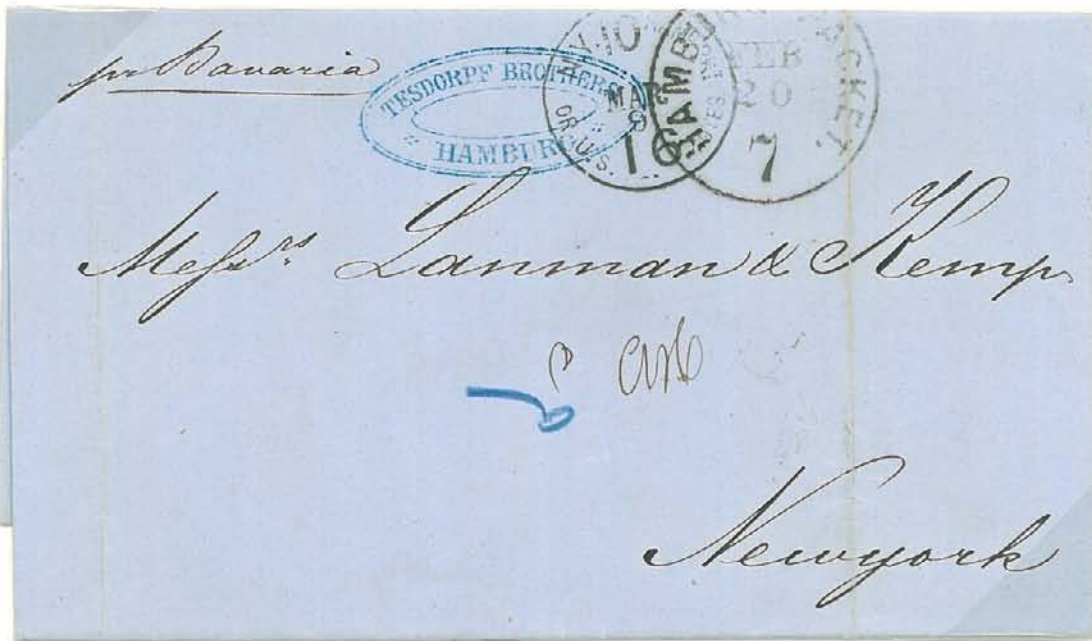 pr Bavaria
TESDORPF BROTHERS
HAMBURG
N.Y.
MAR
8
OR U.S.
16
NOTES
HAMBURG PACKET.
FEB
20
7
Messrs Lanman & Kemp
Newyork